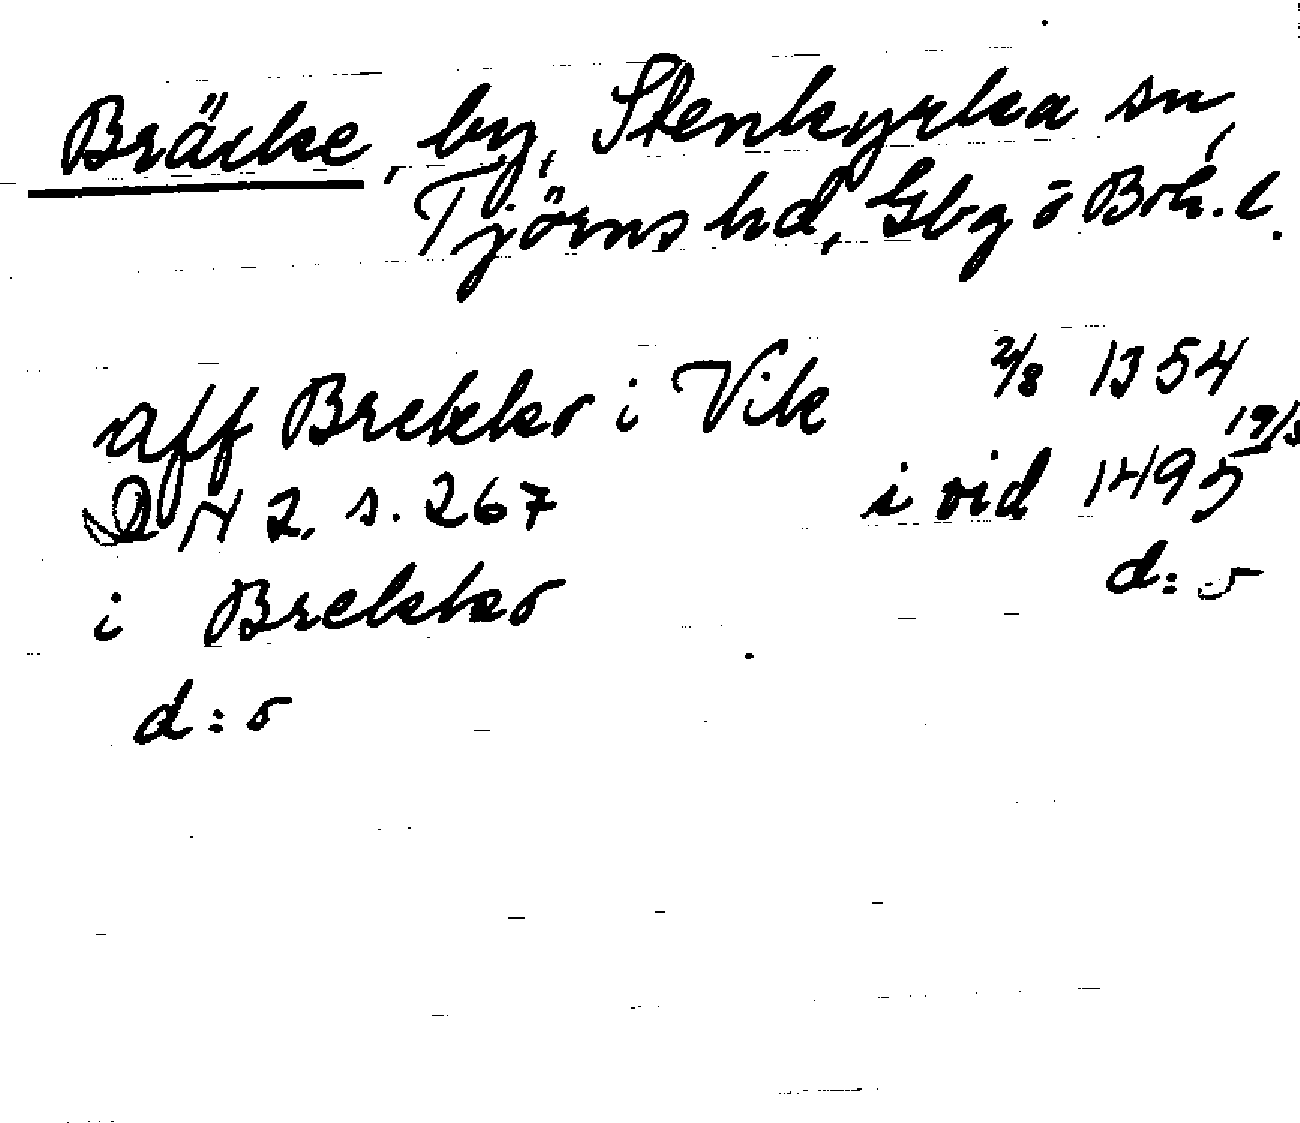 Bräcke, by, Stenkyrka sn,
Tjörns hd, Gbg o Boh. l.
aff Brekko i Vik 2/8 1354
DN 2. s. 267 i vid 1495 19/5
i Brekko d:o
d:o